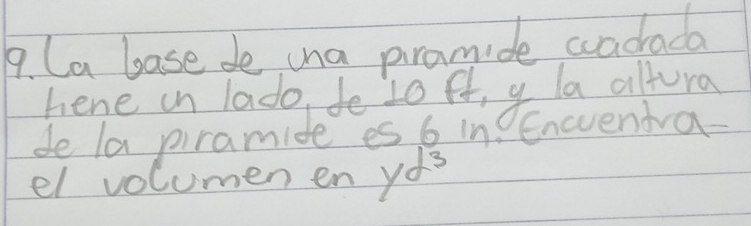 9. La base de una piramide cuadrada
tiene un lado de 10 ft, y la altura
de la piramide es 6 in. Encuentra
el volumen en yd³